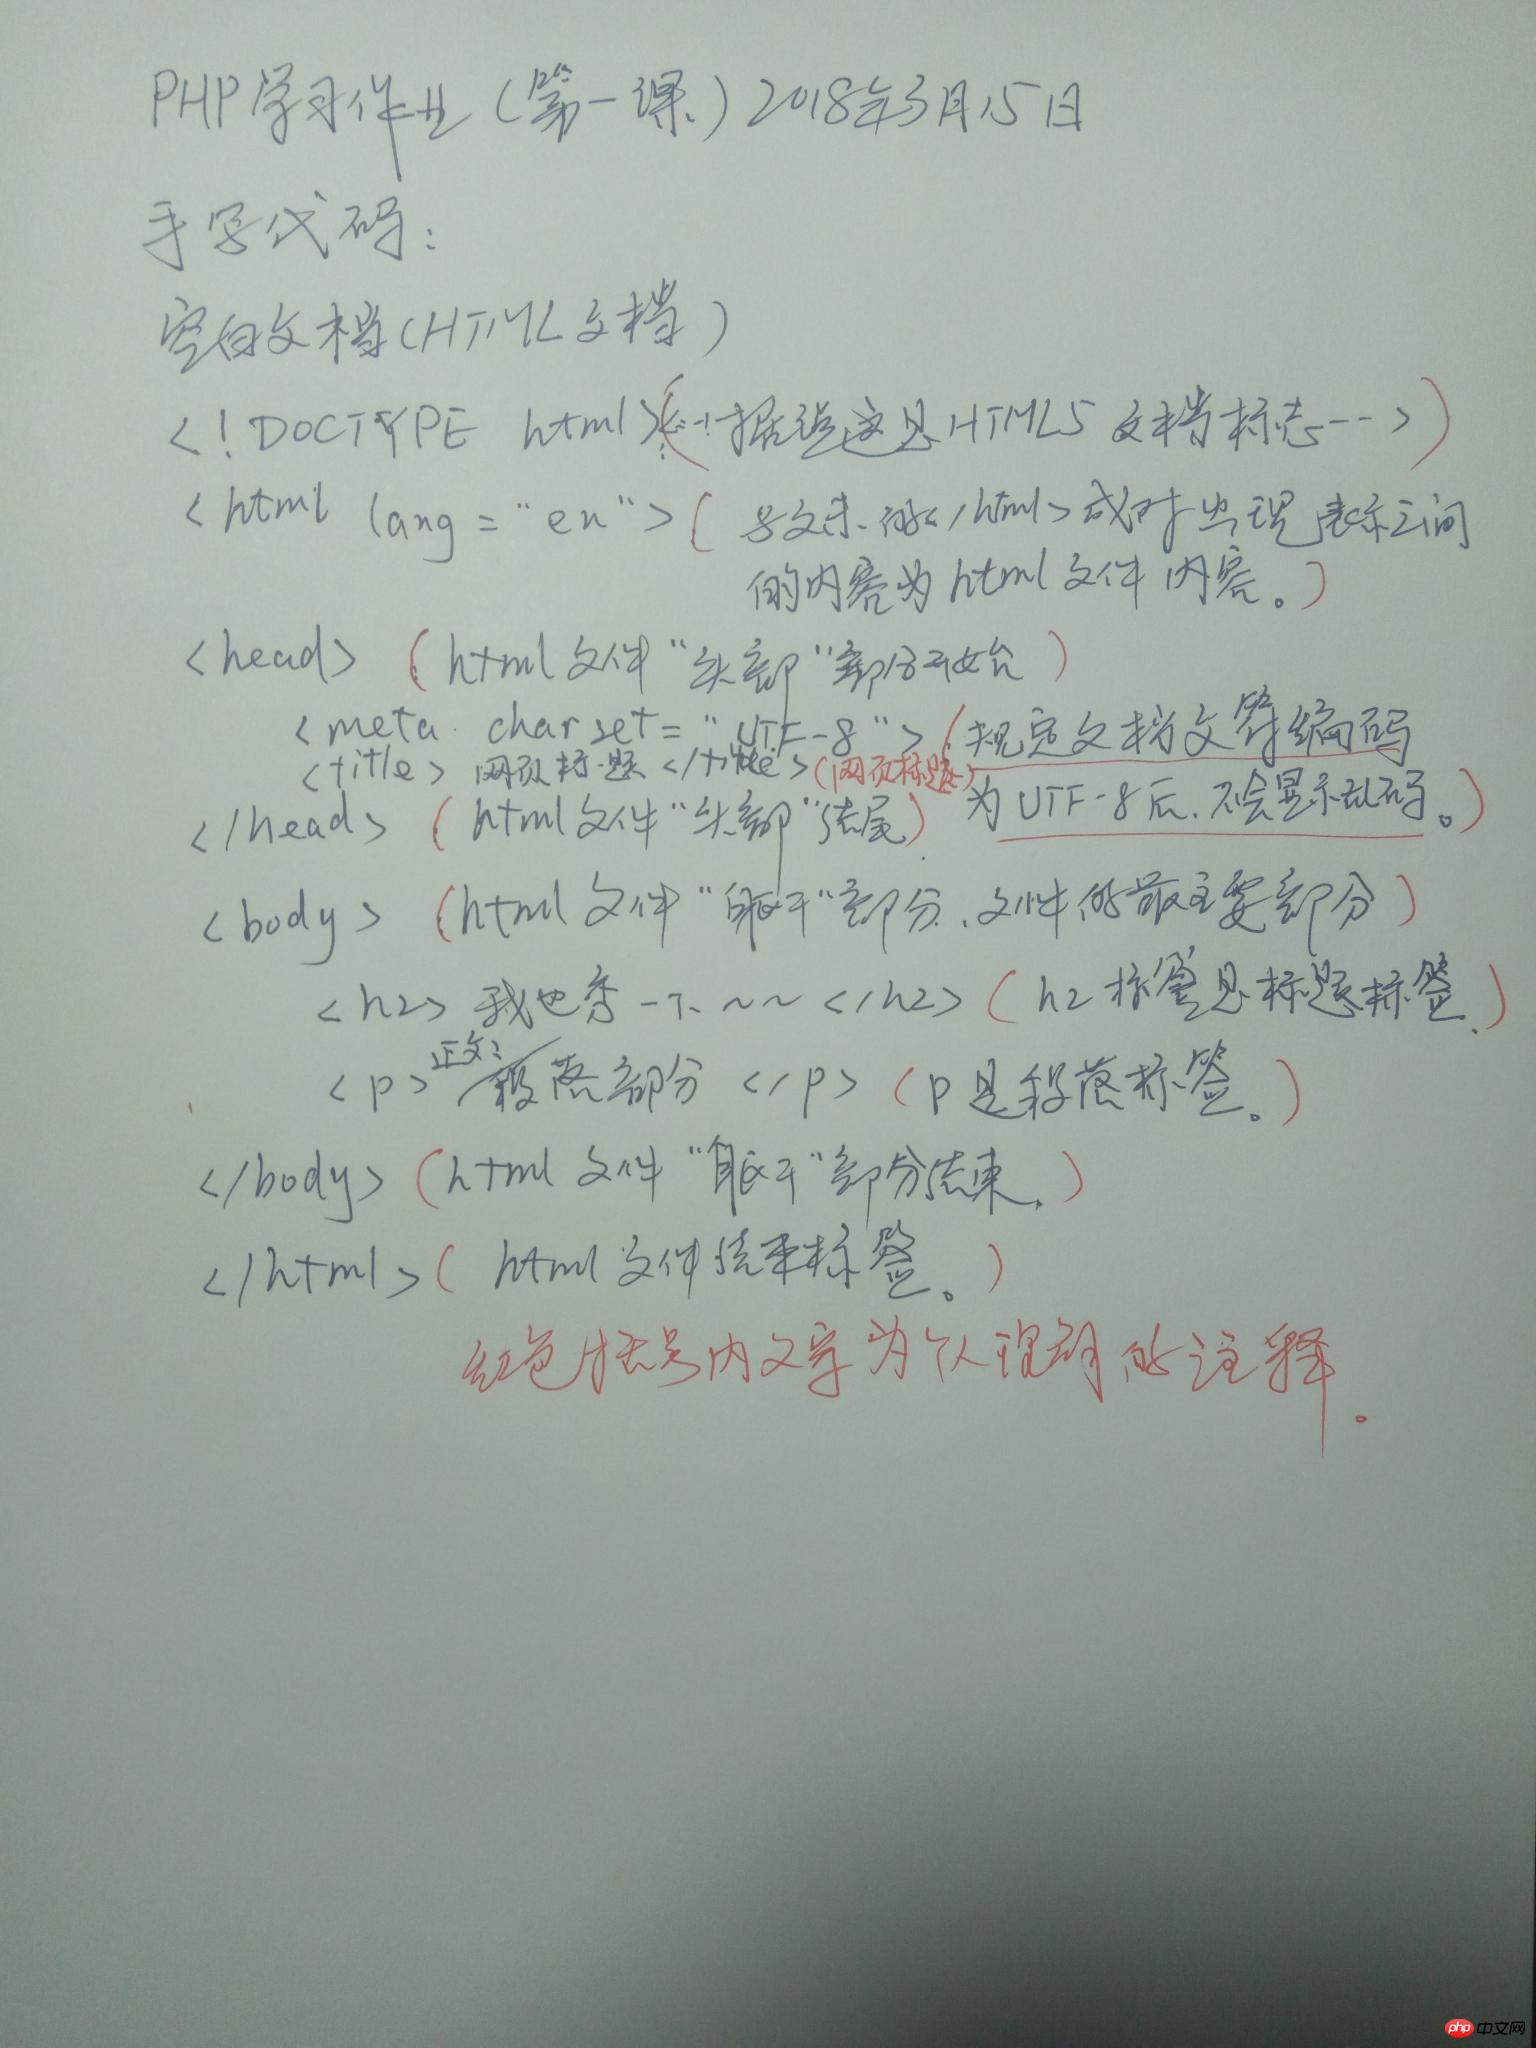 PHP学习作业(第一课)2018年3月15日
手写代码:
空白文档(HTML文档)
<!DOCTYPE html>(<!--据说这是HTML5文档标志-->)
<html lang="en">(与文末的</html>成对出现表示之间
的内容为html文件内容。)
<head>(html文件"头部"部分开始)
<meta charset="UTF-8">(规定文档文符编码
<title>网页标题</title>(网页标题)
为UTF-8后.不会显示乱码。)
</head>(html文件"头部"结尾)
<body>(html文件"身区干"部分.文件的最主要部分)
<h2>我也秀一下~~</h2>(h2标签是标题标签.)
<p>正文:段落部分</p>(p是段落标签。)
</body>(html文件"身区干"部分结束.)
</html>(html文件结束标签。)
红色括号内文字为个人理解的注释。
php中文网